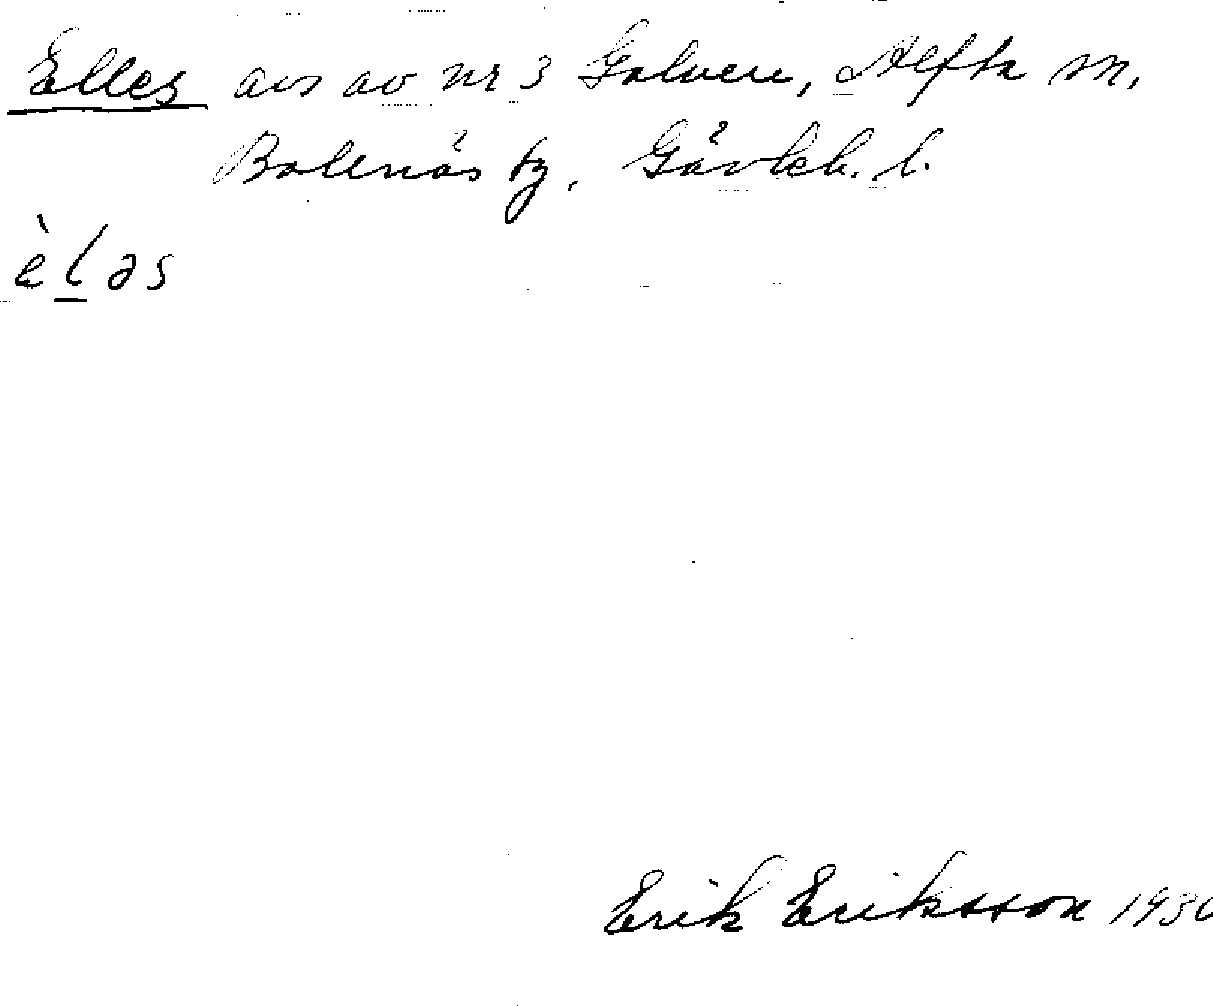 Elles avs av nr 3 Galven, Alfta sn.
Bollnäs tg, Gävleb. l.
èl̲əs
Erik Eriksson 1930